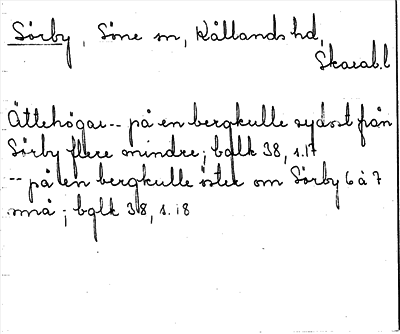 Sörby, Söne sn, Kållands hd,
Skarab.l
Ättehögar -- på en bergkulle sydost från
Sörby flere mindre; bglk 38, s.17
-- på en bergkulle öster om Sörby 6 à 7
små; bglk 38, s.18